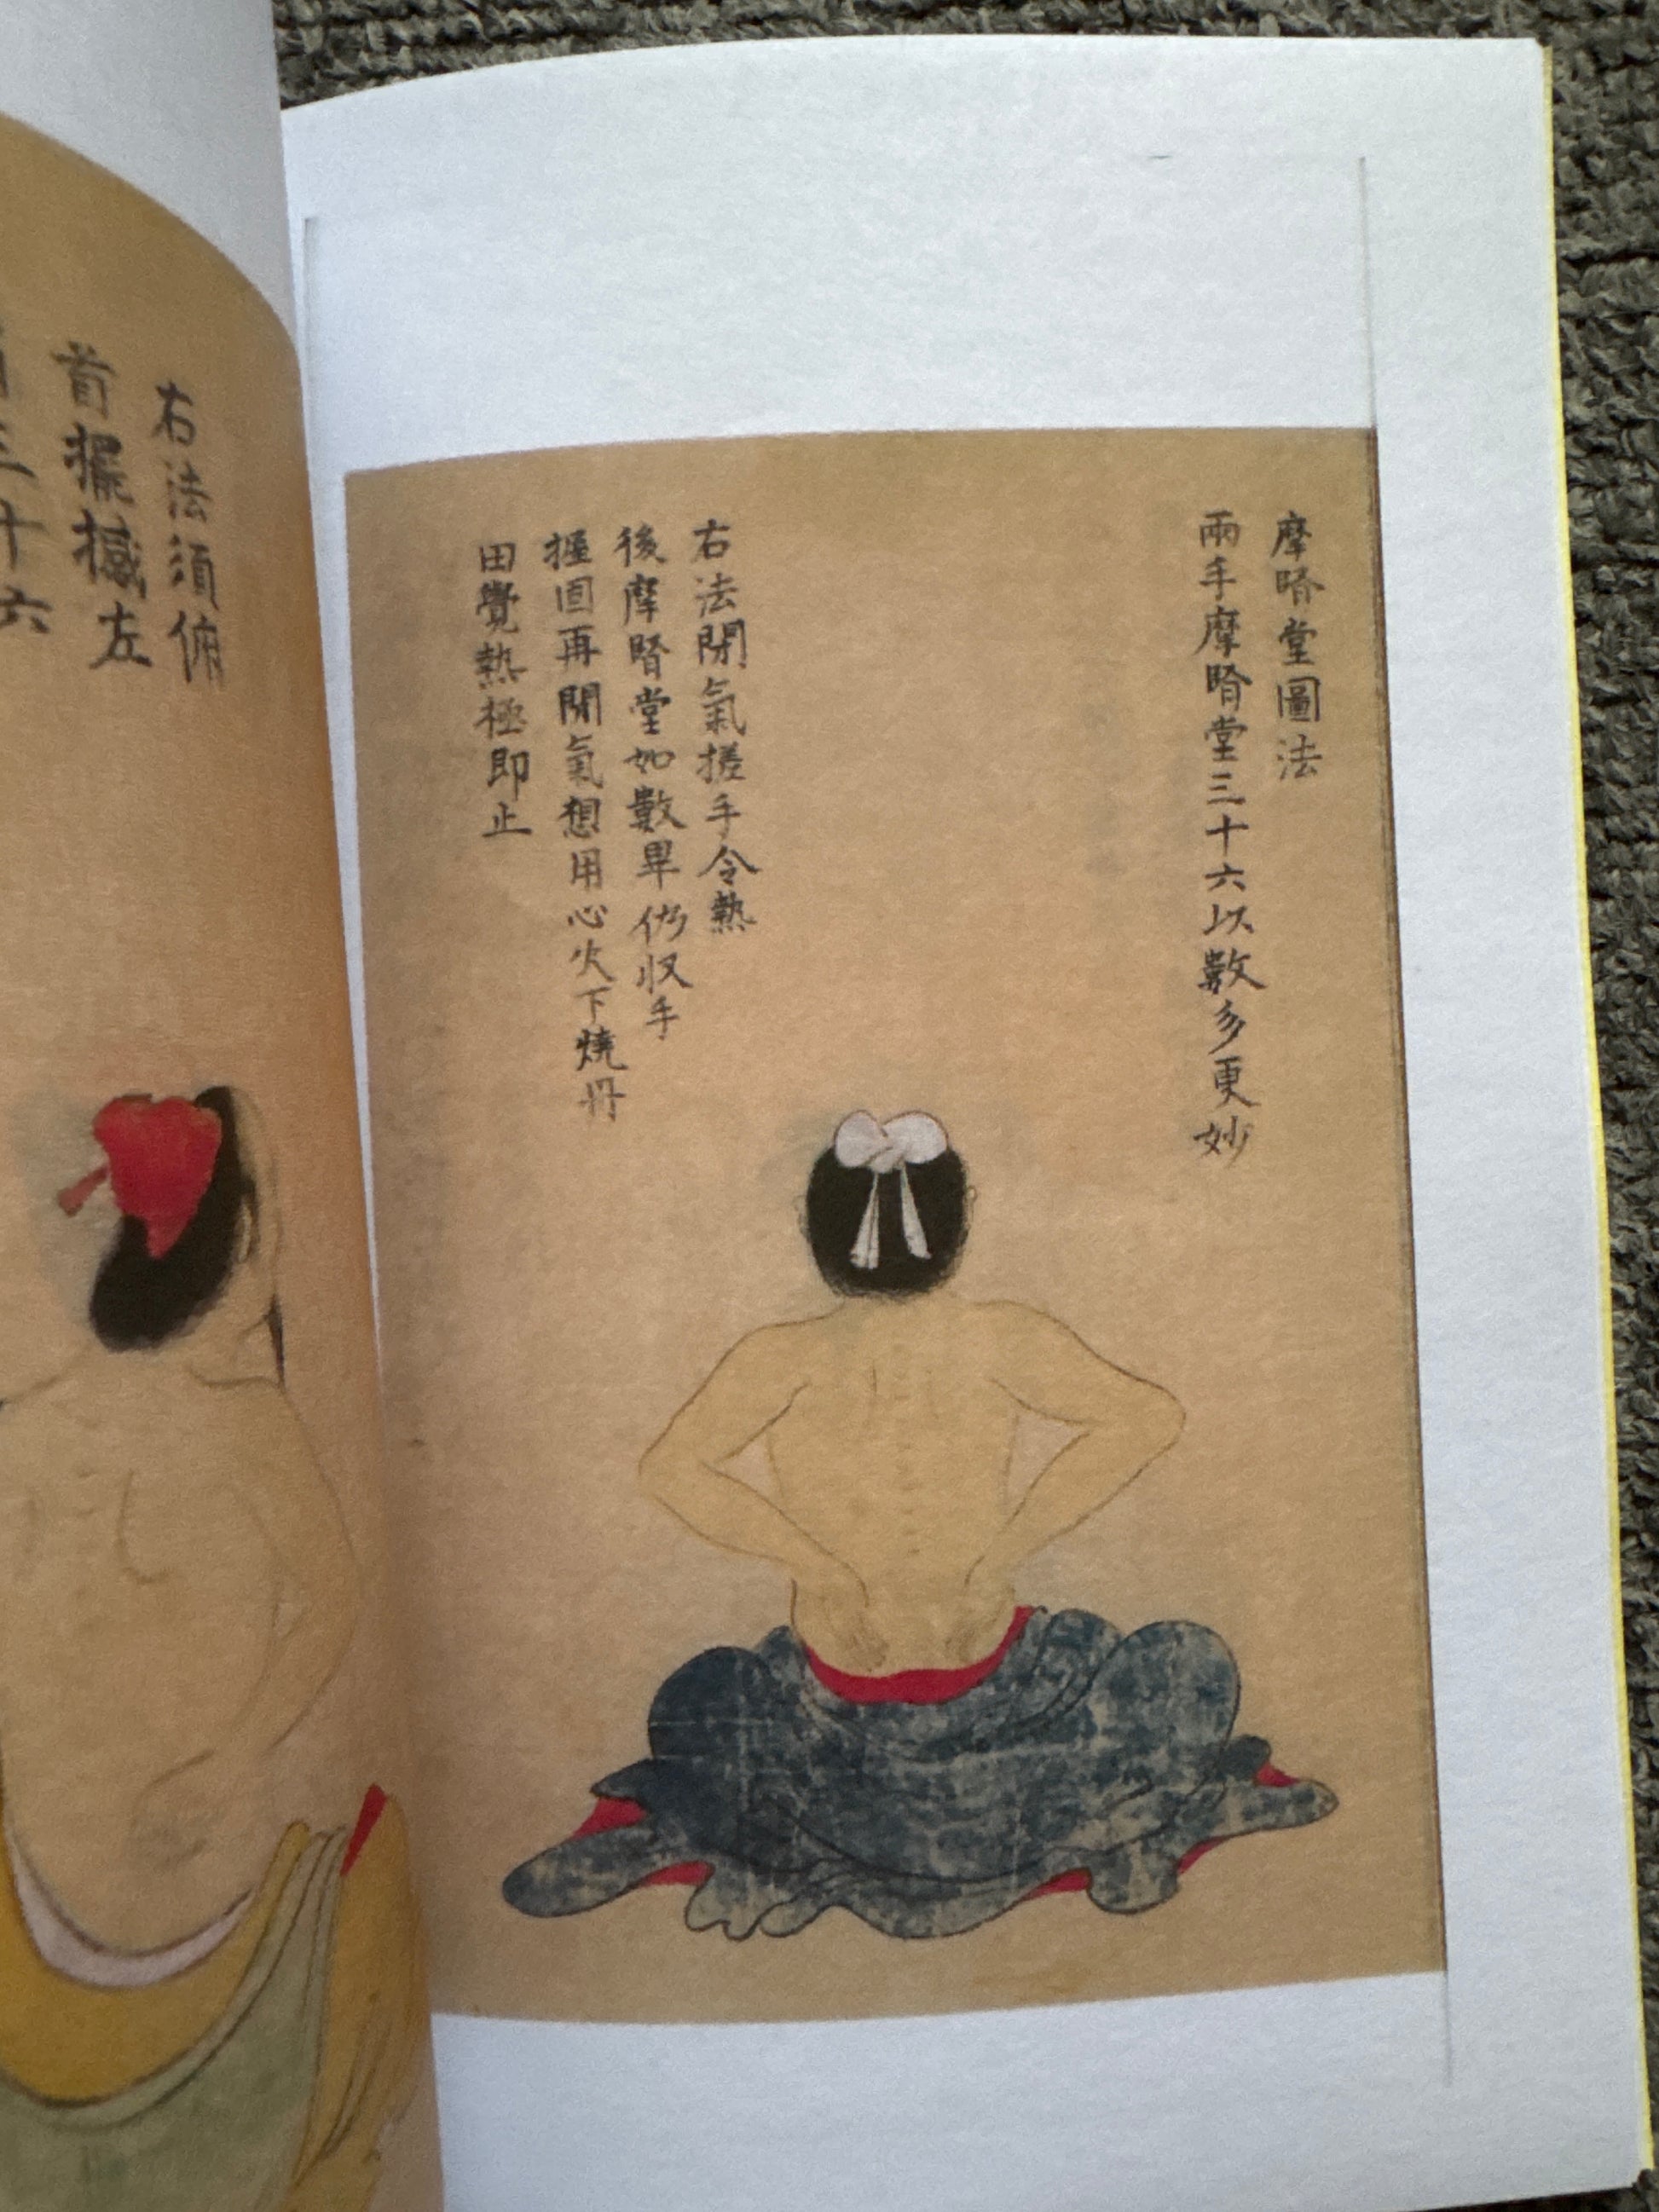 摩腎堂圖法
兩手摩腎堂三十六以數多更妙
右法閉氣搓手令熱
後摩腎堂如數畢仍収手
握固再閉氣想用心火下燒丹
田覺熱極即止
右法須俯
首擺撼左
三十六